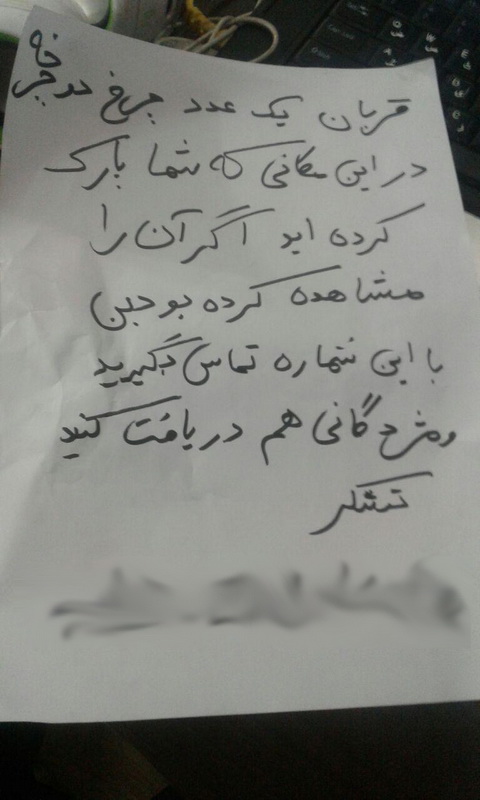 قربان یک عدد چرخ دوچرخه
در این مکانی که شما پارک
کرده اید اگر آن را
مشاهده کرده بودین
با این شماره تماس بگیرید
ومژدگانی هم دریافت کنید
تشکر